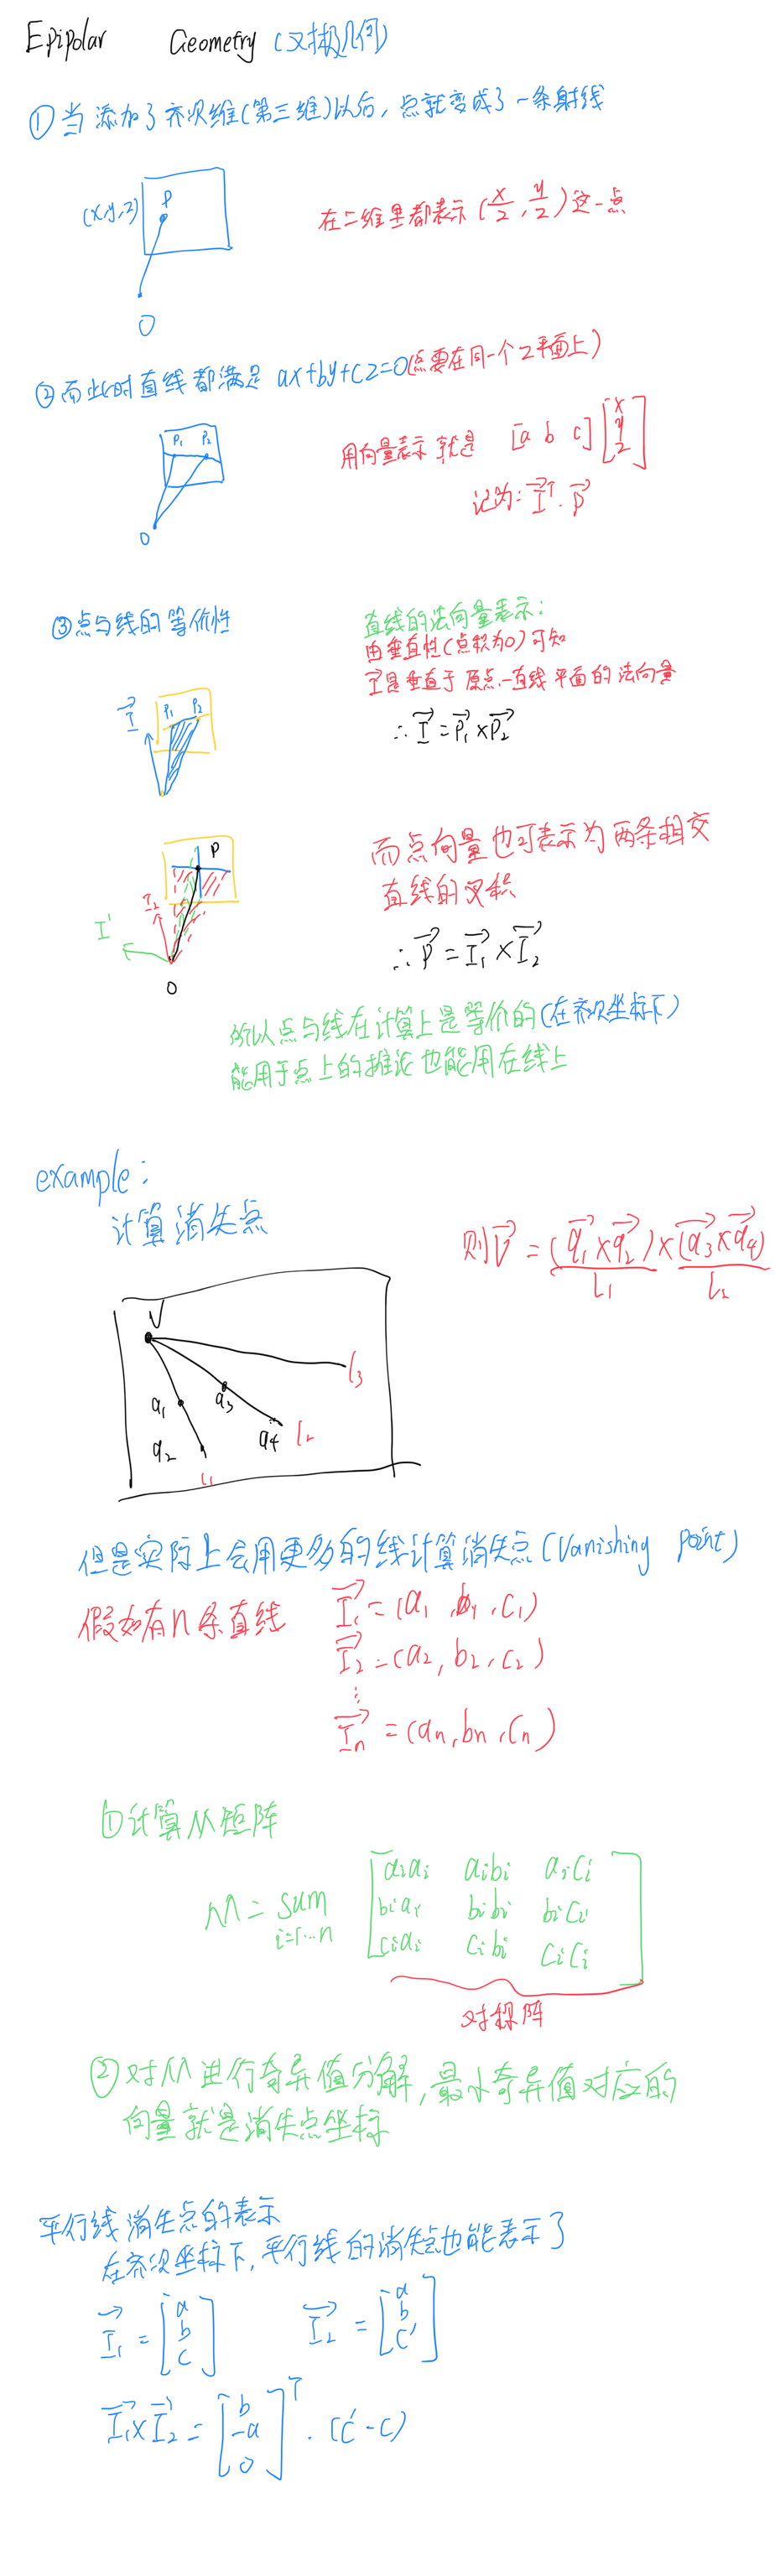 Epipolar Geometry (对极几何)
①当添加了齐次维(第三维)以后,点就变成了一条射线
(x,y,z)
P
O
在二维里都表示(x/z, y/z)这一点
②而此时直线都满足 ax+by+cz=0(点要在同一个z平面上)
P1 P2
O
用向量表示就是 [a b c] [x y z]
记为: I^T · P
③点与线的等价性
I
P1 P2
直线的法向量表示:
由垂直性(点积为0)可知
I是垂直于原点-直线平面的法向量
∴ I = P1 × P2
P
I2
I'
O
而点向量也可表示为两条相交
直线的叉积
∴ P = I1 × I2
所以点与线在计算上是等价的(在齐次坐标下)
能用于点上的推论也能用在线上
example:
计算消失点
则 V = (q1 × q2) × (q3 × q4)
L1 L2
V
l3
q1
q3
q2
q4
l2
l1
但是实际上会用更多的线计算消失点(Vanishing point)
假如有n条直线 I1 = (a1, b1, c1)
I2 = (a2, b2, c2)
⋮
In = (an, bn, cn)
①计算M矩阵
M = sum i=1…n
[aiai aibi aici
biai bibi bici
ciai cibi cici]
对称阵
②对M进行奇异值分解,最小奇异值对应的
向量就是消失点坐标
平行线消失点的表示
在齐次坐标下,平行线的消失点也能表示了
I1 = [a b c] I2 = [a b c']
I1×I2 = [b -a 0]^T · (c'-c)